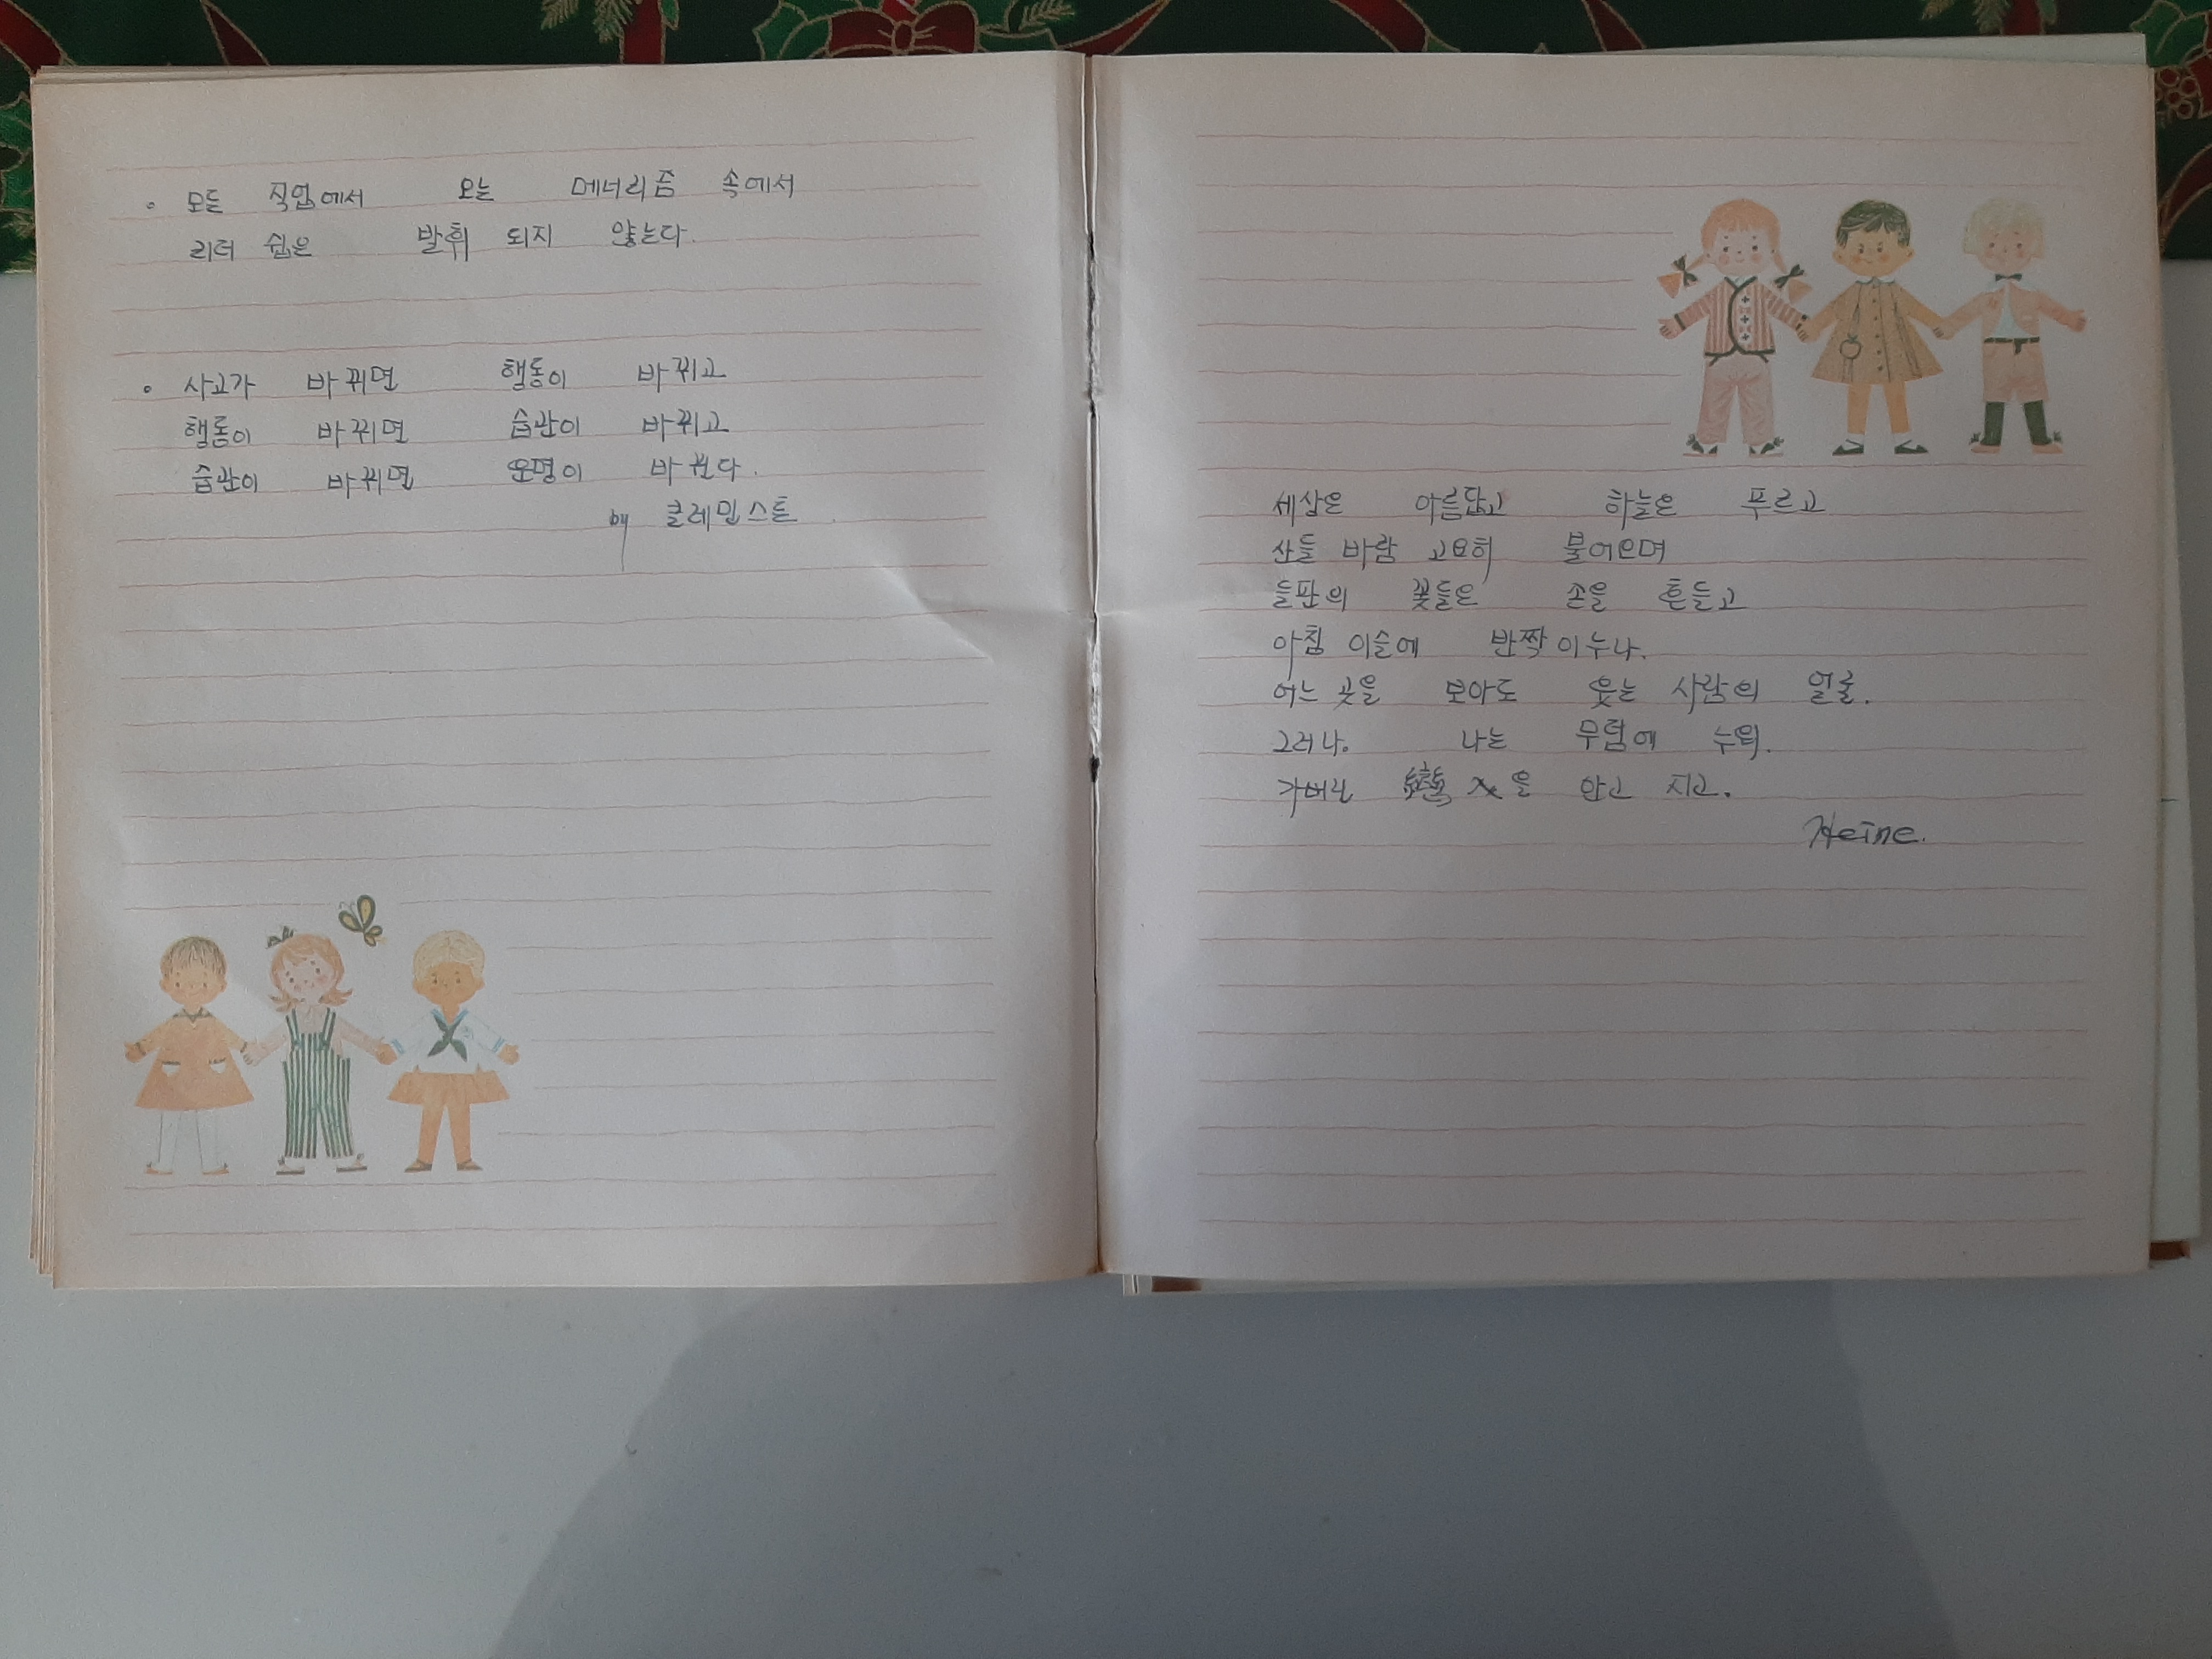 。 모든 직업에서 오는 메너리즘 속에서
리더 쉽은 발휘 되지 않는다.
。 사고가 바뀌면 행동이 바뀌고
행동이 바뀌면 습관이 바뀌고
습관이 바뀌면 운명이 바뀐다.
by 클레민스톤
세상은 아름답고 하늘은 푸르고
산들 바람 고요히 불어오며
들판의 꽃들은 손을 흔들고
아침 이슬에 반짝이누나.
어느 곳을 보아도 웃는 사람의 얼굴.
그러나. 나는 무덤에 누워.
가버린 戀人을 안고 지고.
Heine.